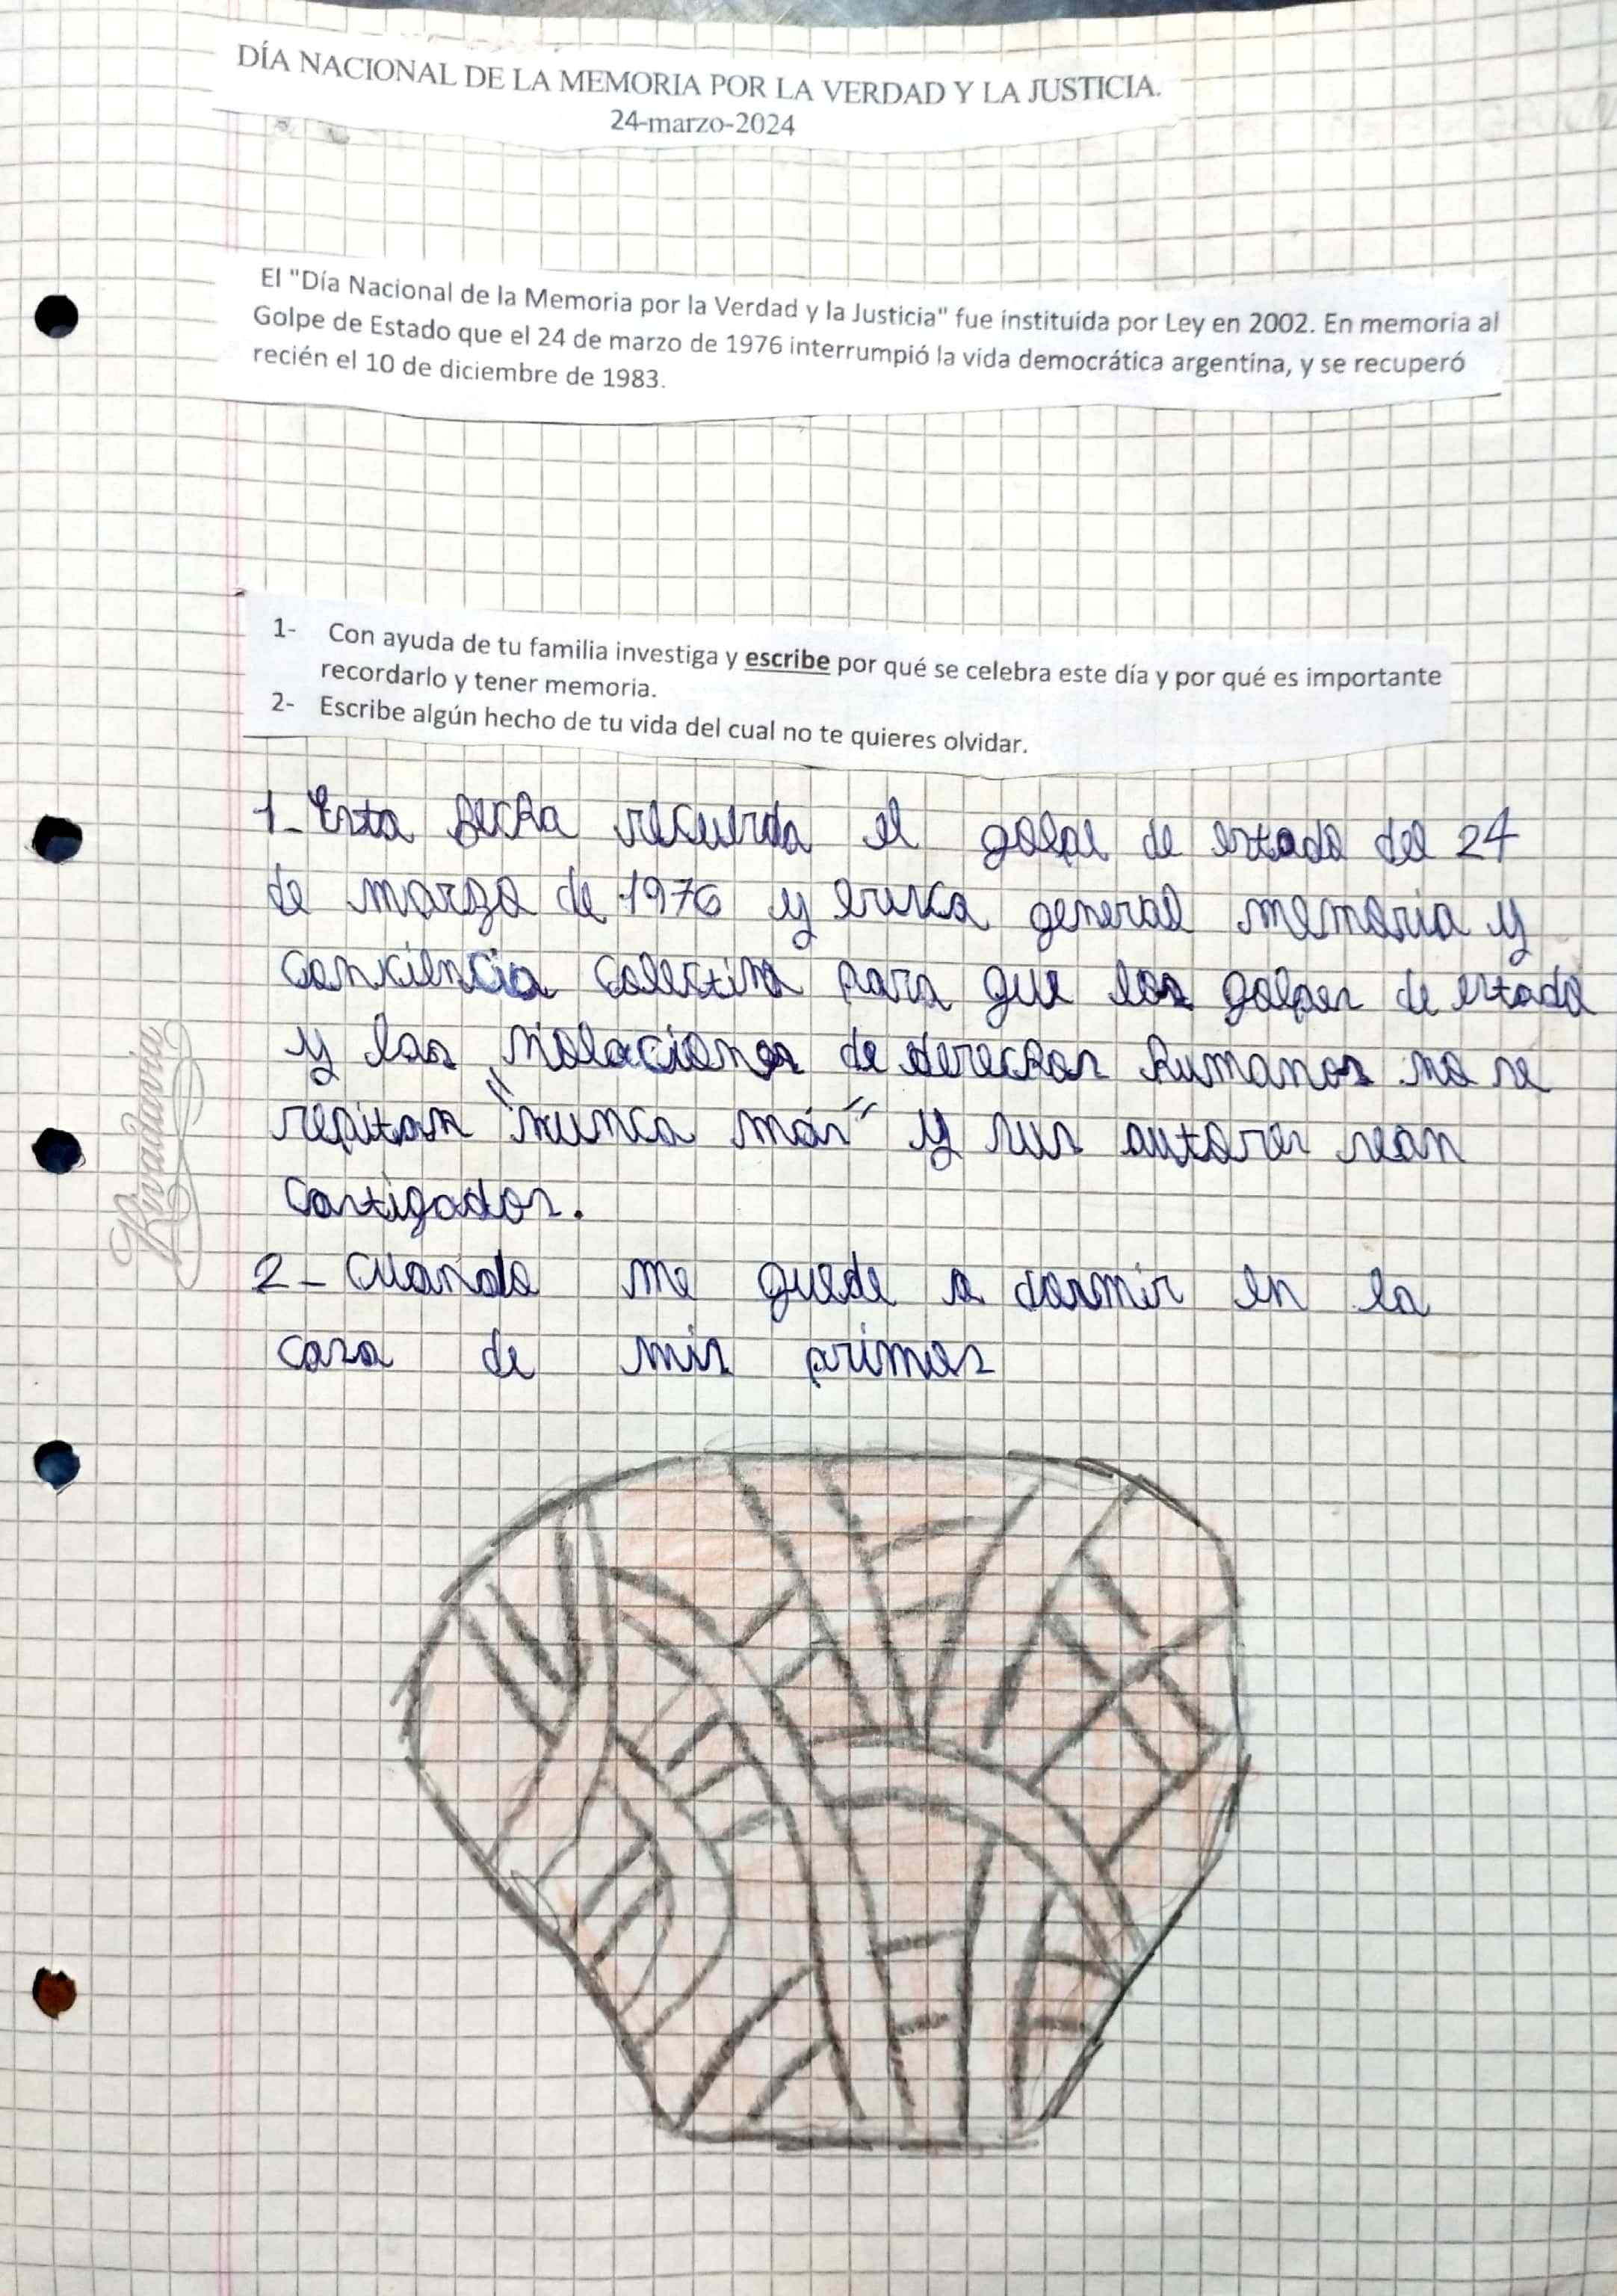 DÍA NACIONAL DE LA MEMORIA POR LA VERDAD Y LA JUSTICIA.
24-marzo-2024
El "Día Nacional de la Memoria por la Verdad y la Justicia" fue instituida por Ley en 2002. En memoria al
Golpe de Estado que el 24 de marzo de 1976 interrumpió la vida democrática argentina, y se recuperó
recién el 10 de diciembre de 1983.
1- Con ayuda de tu familia investiga y escribe por qué se celebra este día y por qué es importante
recordarlo y tener memoria.
2- Escribe algún hecho de tu vida del cual no te quieres olvidar.
1- Esta fecha recuerda el golpe de estado del 24
de marzo de 1976 y busca general memoria y
conciencia colectiva para que los golpes de estado
y las violaciones de derechos humanos no se
repitan "nunca más" y sus autores sean
castigados.
2- Cuando me quede a dormir en la
casa de mis primos
Rivadavia